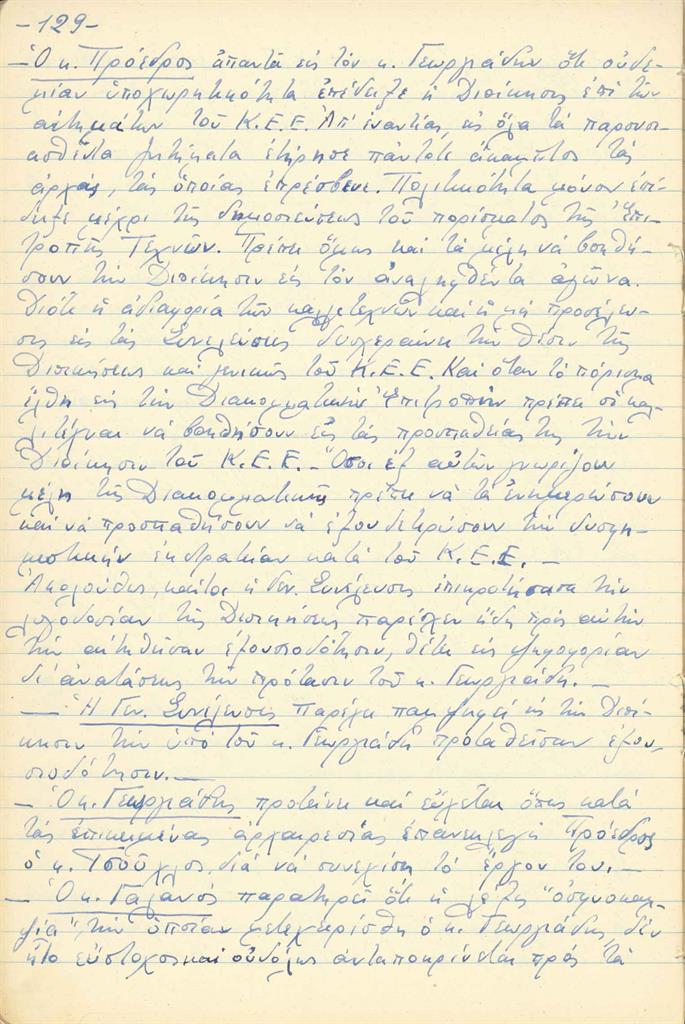 -129-
- Ὁ κ. Πρόεδρος ἀπαντᾶ εἰς τόν κ. Γεωργιάδην ὅτι οὐδε-
μίαν ὑποχωρητικότητα ἐπέδειξε ἡ Διοίκησις ἐπί τῶν
αἰτημάτων τοῦ Κ.Ε.Ε. Ἀπ' ἐναντίας, εἰς ὅλα τά παρουσι-
ασθέντα ζητήματα ἐτήρησε πάντοτε ἀκάμπτως τάς
ἀρχάς, τάς ὁποίας ἐπρέσβευε. Πολιτικότητα μόνον ἐπέ-
δειξε μέχρι τῆς δημοσιεύσεως τοῦ πορίσματος τῆς Ἐπι-
τροπῆς Τεχνῶν. Πρέπει ὅμως καί τά μέλη νά βοηθή-
σουν τήν Διοίκησιν εἰς τόν ἀναληφθέντα ἀγῶνα.
Διότι ἡ ἀδιαφορία τῶν καλλιτεχνῶν καί ἡ μή προσέλευ-
σις εἰς τάς Συνελεύσεις δυσχεραίνει τήν θέσιν τῆς
Διοικήσεως καί γενικῶς τοῦ Κ.Ε.Ε. Καί ὅταν τό πόρισμα
ἔλθη εἰς τήν Διακομματικήν Ἐπιτροπήν πρέπει οἱ καλ-
λιτέχναι νά βοηθήσουν εἰς τάς προσπαθείας της τήν
Διοίκησιν τοῦ Κ.Ε.Ε. - Ὅσοι ἐξ αὐτῶν γνωρίζουν
μέλη τῆς Διακομματικῆς πρέπει νά τά ἐνημερώσουν
καί νά προσπαθήσουν νά ἐξουδετερώσουν τήν δυσφη-
μιστικήν ἐκστρατείαν κατά τοῦ Κ.Ε.Ε. -
Ἀκολούθως, καίτοι ἡ Γεν. Συνέλευσις ἐπικροτήσασα τήν
λογοδοσίαν τῆς Διοικήσεως παρέσχεν ἤδη πρός αὐτήν
τήν αἰτηθεῖσαν ἐξουσιοδότησιν, θέτει εἰς ψηφοφορίαν
δι' ἀνατάσεως τήν πρότασιν τοῦ κ. Γεωργιάδη. -
- Ἡ Γεν. Συνέλευσις παρέχει παμψηφεί εἰς τήν Διοί-
κησιν τήν ὑπό τοῦ κ. Γεωργιάδη προταθεῖσαν ἐξου-
σιοδότησιν. -
- Ὁ κ. Γεωργιάδης προτείνει καί εὔχεται ὅπως κατά
τάς ἐπικειμένας ἀρχαιρεσίας ἐπανεκλεγῆ Πρόεδρος
ὁ κ. Τσοῦχλος διά νά συνεχίση τό ἔργον του. -
- Ὁ κ. Γαλανός παρατηρεῖ ὅτι ἡ λέξις "ὀσφυοκαμ-
ψία", τήν ὁποίαν μετεχειρίσθη ὁ κ. Γεωργιάδης δέν
ἦτο εὔστοχος καί οὐδόλως ἀνταποκρίνεται πρός τά